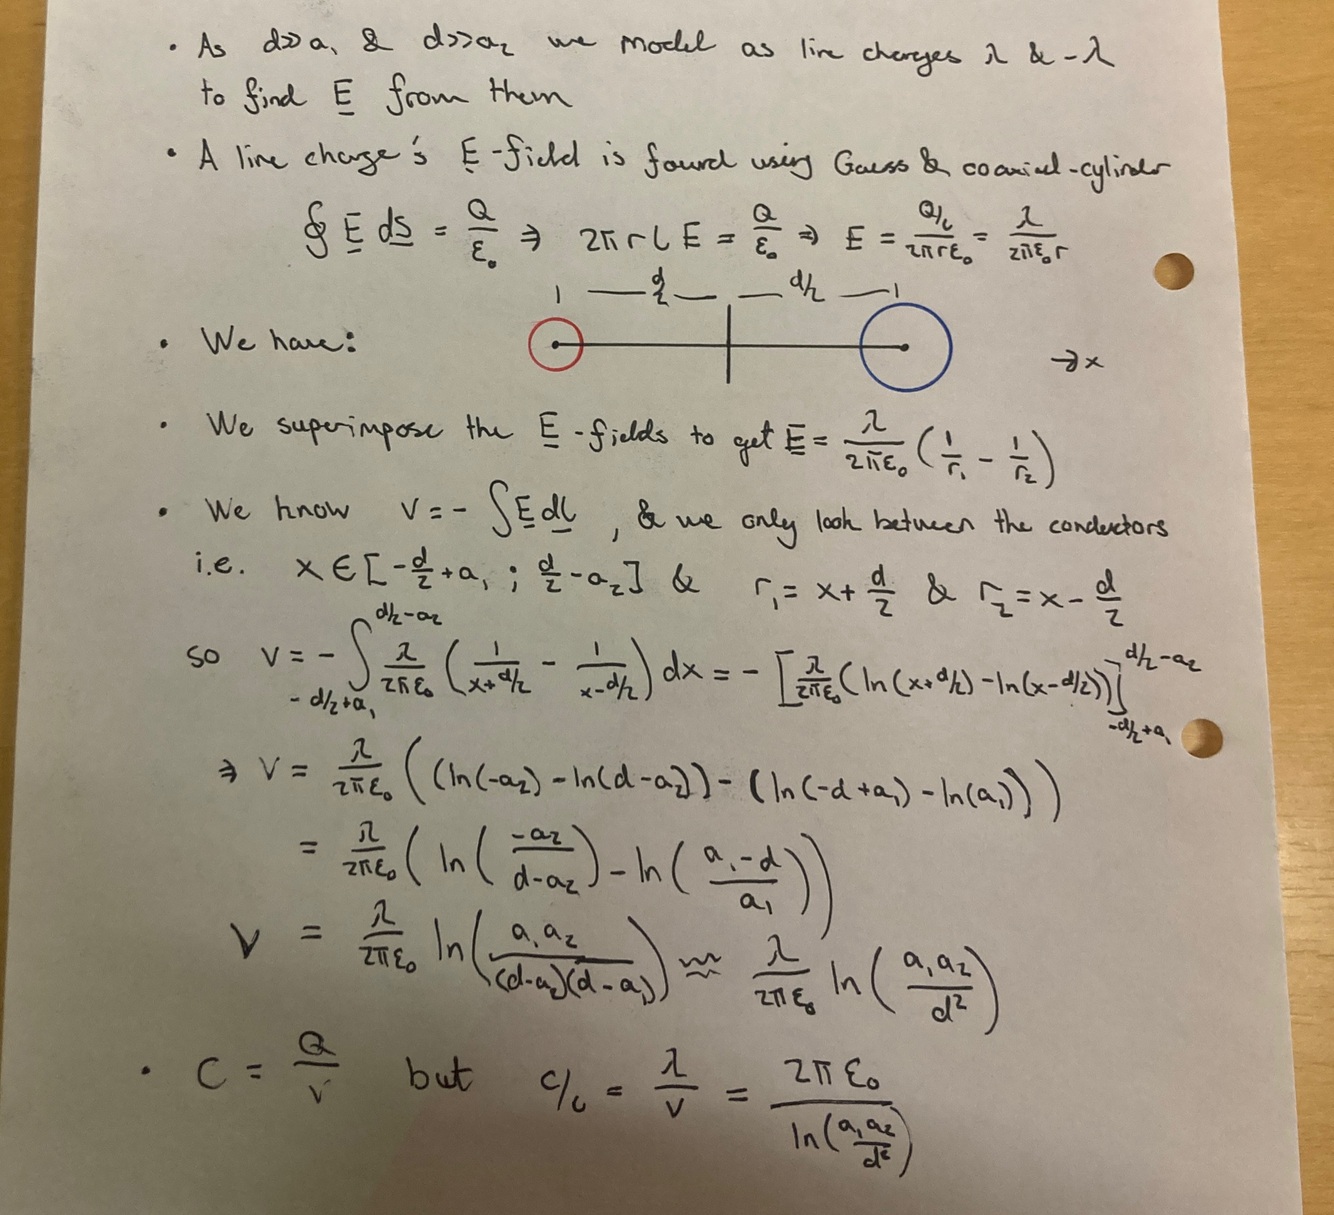 • As d>>a₁ & d>>a₂ we model as line charges λ & -λ
to find E from them
• A line charge's E-field is found using Gauss & coaxial-cylinder
∮ E ds = Q/ε₀ ⇒ 2πrL E = Q/ε₀ ⇒ E = (Q/L)/(2πrε₀) = λ/(2πε₀r)
d/2 d/2
• We have: → x
• We superimpose the E-fields to get E = λ/(2πε₀) (1/r₁ - 1/r₂)
• We know V = - ∫E dl, & we only look between the conductors
i.e. x ∈ [-d/2 + a₁ ; d/2 - a₂] & r₁ = x + d/2 & r₂ = x - d/2
so V = - ∫_{-d/2+a₁}^{d/2-a₂} λ/(2πε₀) (1/(x+d/2) - 1/(x-d/2)) dx = - [λ/(2πε₀) (ln(x+d/2) - ln(x-d/2))]_{-d/2+a₁}^{d/2-a₂}
⇒ V = λ/(2πε₀) ((ln(-a₂) - ln(d-a₂)) - (ln(-d+a₁) - ln(a₁)))
= λ/(2πε₀) (ln(-a₂/(d-a₂)) - ln((a₁-d)/a₁))
V = λ/(2πε₀) ln(a₁a₂/((d-a₂)(d-a₁))) ≈ λ/(2πε₀) ln(a₁a₂/d²)
• C = Q/V but C/L = λ/V = 2πε₀/ln(a₁a₂/d²)